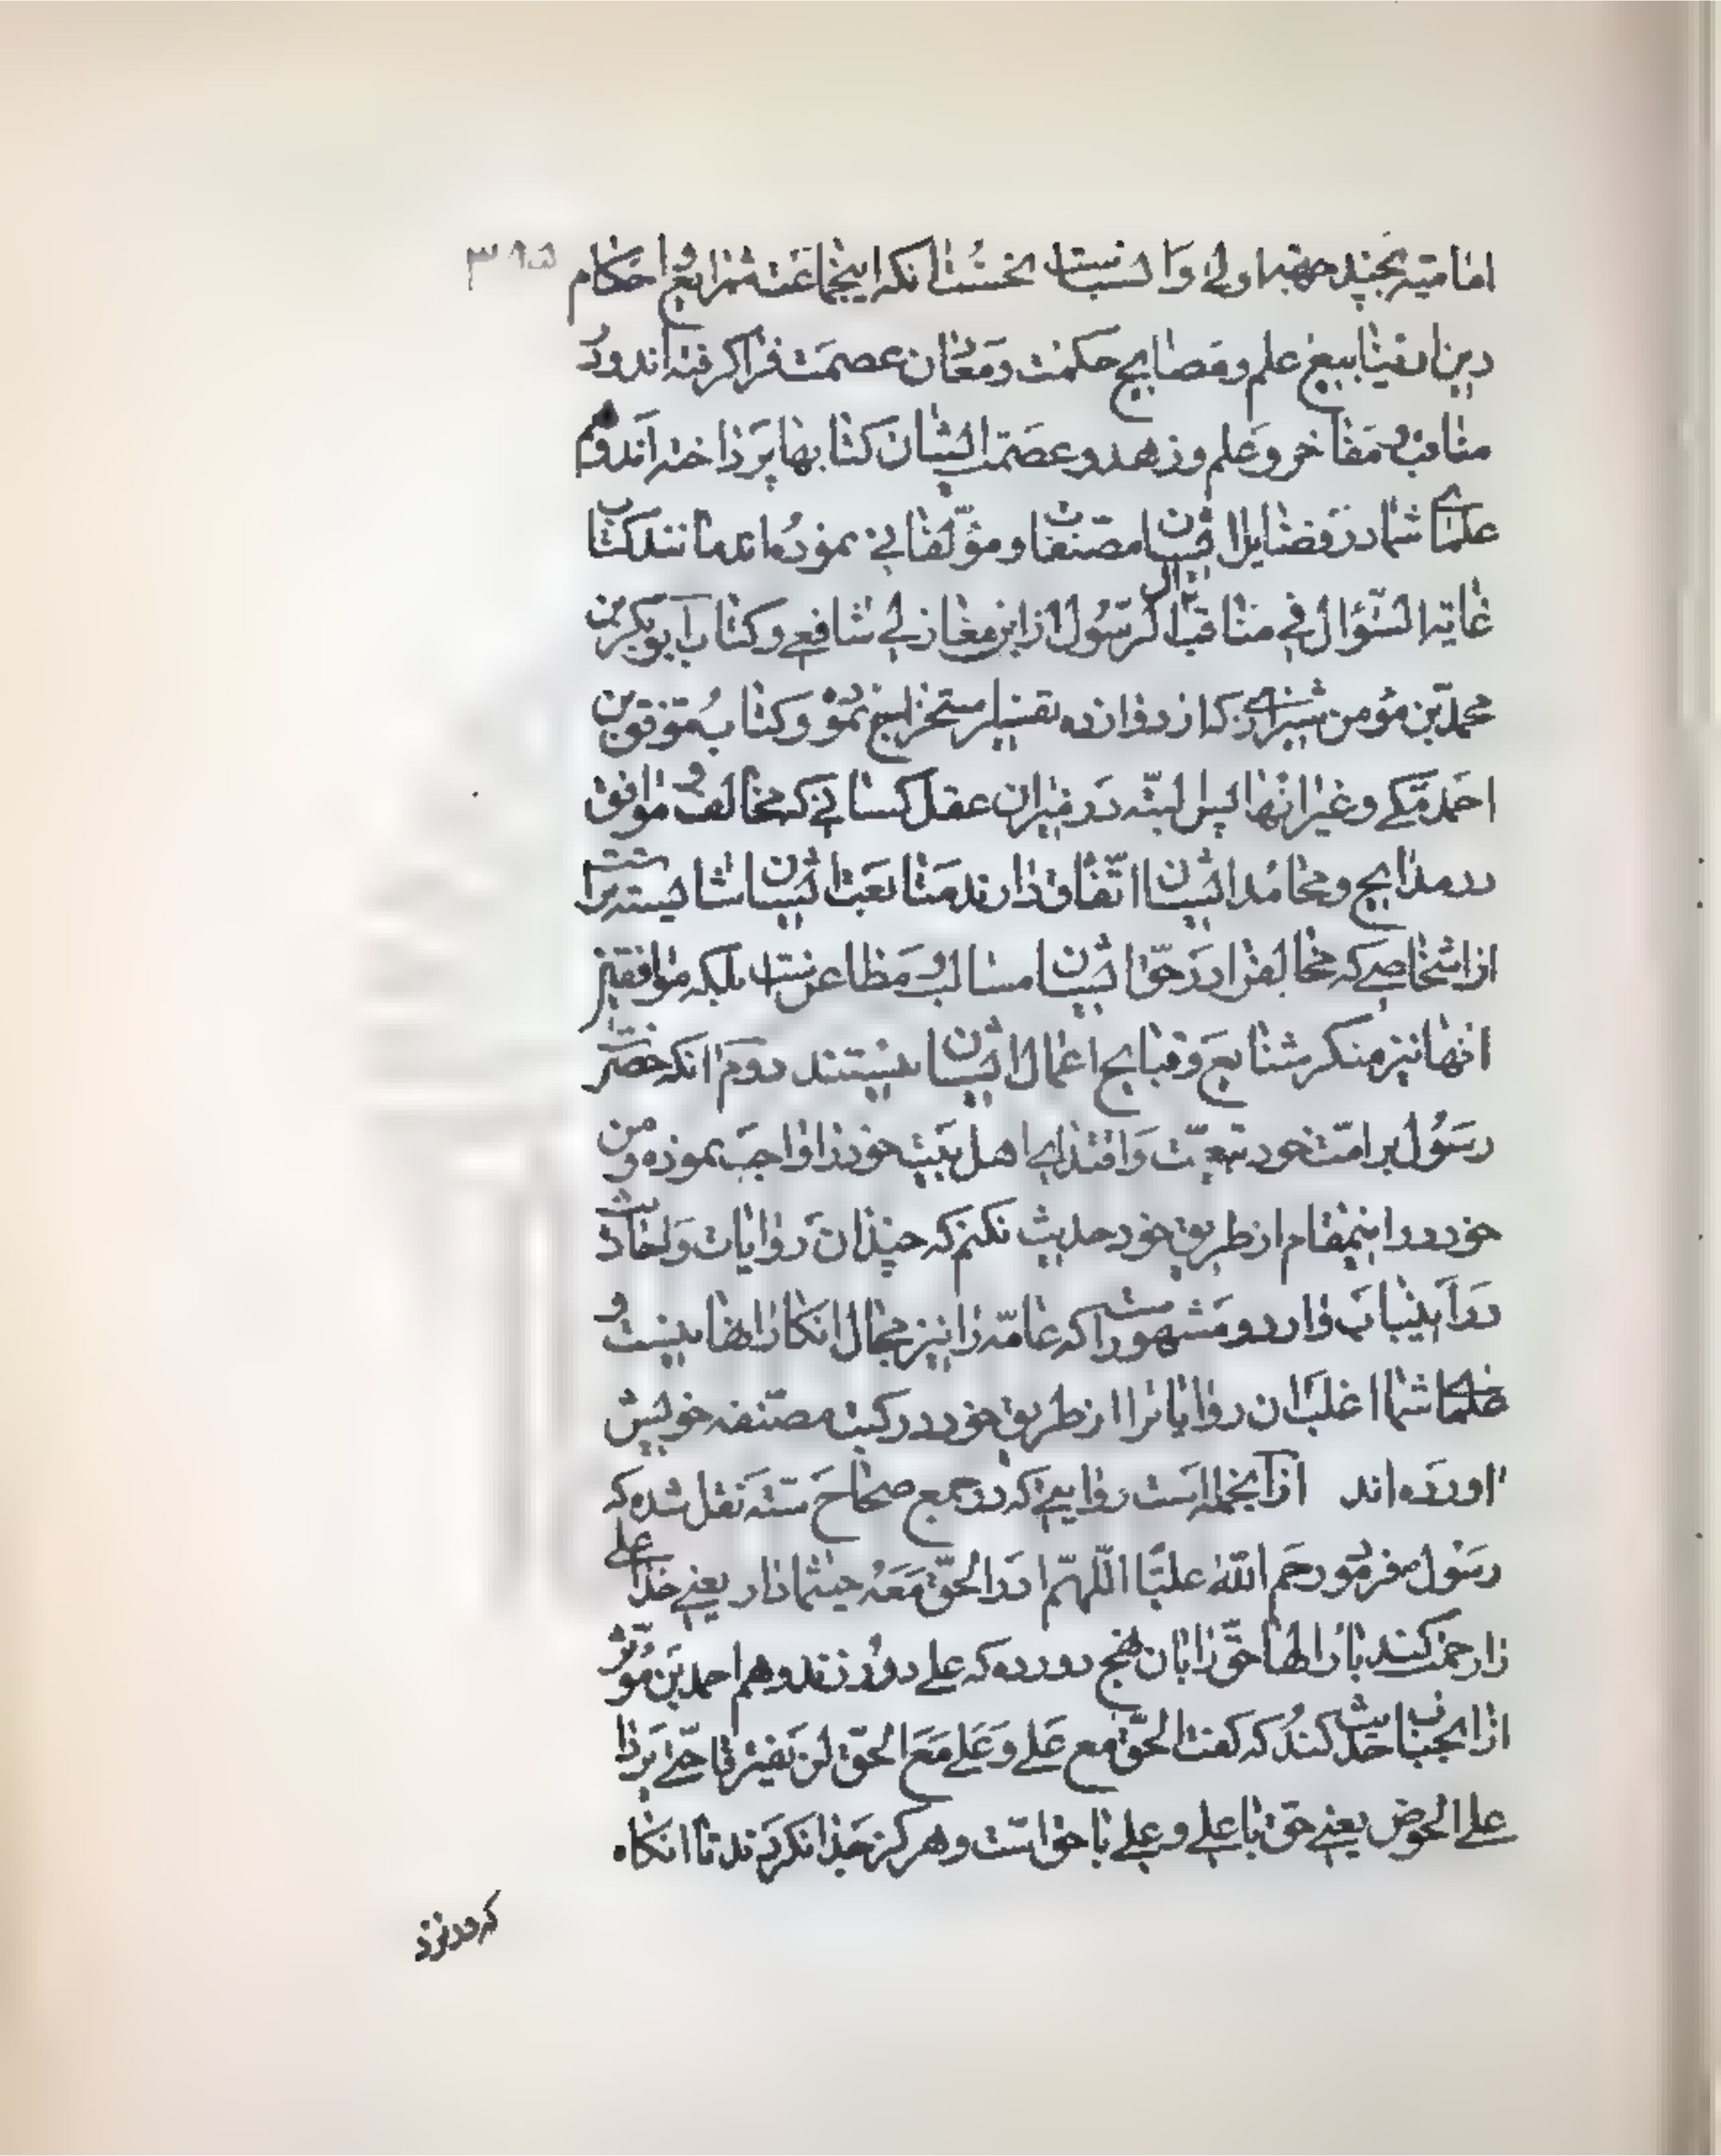 امامیّه بچند جهة اولی و انسب است نخست آنکه اینجماعت شرایع و احکام
دین از ینابیع علم و مصابیح حکمت و معادن عصمت فرا گرفته اند و در
مناقب و مفاخر و علم و زهد و عصمت ایشان کتابها پرداخته اند و هم
علمای شما در فضایل ایشان مصنفات و مؤلفاتی نموده اند مانند کتاب
غایة السّؤال فی مناقب آل الرّسول از ابن مغازلی شافعی و کتاب ابو بکر بن
محمّد بن مؤمن شیرازی که از دوازده تفسیر استخراج نموده و کتاب موفق بن
احمد مکّی و غیر آنها پس البتّه در میزان عقل کسانی که مخالف و موافق
در مدایح و محامد ایشان اتّفاق دارند متابعت ایشان شایسته تر است
از اشخاصی که مخالفرا در حقّ ایشان مسالب و مطاعن است بلکه موافقین
آنها نیز منکر شنایع و قبایح اعمال ایشان نیستند دوم آنکه حضرت
رسول بر امّت خود تبعیّت و اقتدای اهل بیت خود را واجب نموده و من
خود در اینمقام از طریق خود حدیث نکنم که چندان روایات و احادیث
در این باب وارد و مشهور است که عامّه را نیز مجال انکار آنها نیست و
علمای شما اغلب آن روایاترا از طریق خود در کتب مصنّفه خویش
آورده اند از آنجمله است روایتی که در جمع صحاح ستّه نقل شده که
رسول فرمود رحم الله علیّا اللّهمّ ادر الحقّ معه حیثما دار یعنی خدا علی
را رحمت کند بار الها حقّ را بآن نهج دور ده که علی دور زند و هم احمد بن موثر
از آنجناب حدیث کند که گفت الحقّ مع علی و علی مع الحقّ لن یفترقا حتّی یردا
علی الحوض یعنی حق با علی و علی با حق است و هرگز جدا نگردند تا آنگاه
که در نزد
۳۹۵